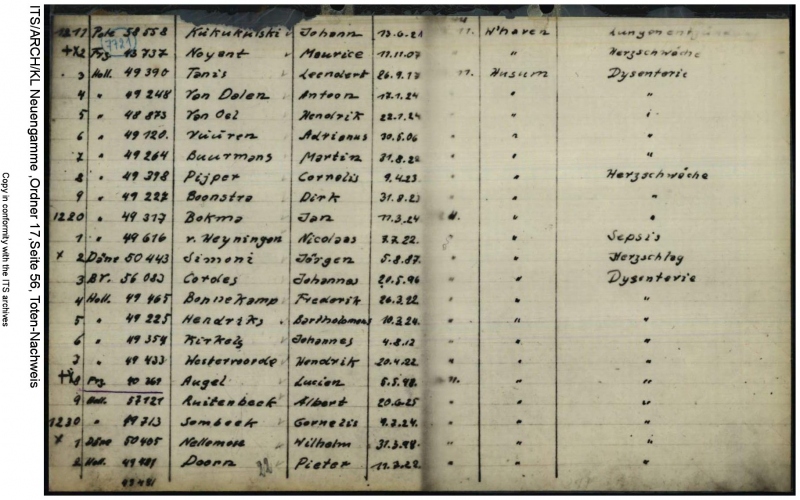 ITS/ARCH/KL Neuengamme ,Ordner 17,Seite 56, Toten-Nachweis
Copy in conformity with the ITS archives
1217 Pole 58558 Kukukulski Johann 13.6.21 11. W'haven Lungenentzünd
2 Frz 43737 Noyent Maurice 11.11.07 " Herzschwäche
3 Holl. 49390 Tanis Leendert 26.9.17 11. Husum Dysenterie
4 " 49248 Van Dalen Antoon 17.1.24 " "
5 " 48873 Van Oel Hendrik 22.1.24 " "
6 " 49120. Vuuren Adrianus 10.5.06 " "
7 " 49264 Buurmans Martin 31.8.26 " "
8 " 49398 Pijper Cornelis 9.4.23 " Herzschwäche
9 " 49227 Boonstra Dirk 31.8.23 " "
1220 " 49317 Bokma Jan 11.3.24 " "
1 " 49616 v. Heyningen Nicolaas 7.7.22. " Sepsis
x 2 Däne 50443 Simoni Jörgen 5.8.87. " Herzschlag
3 Br. 56083 Cordes Johannes 20.5.96 " Dysenterie
4 Holl. 49465 Bonnekamp Frederik 26.3.22 " "
5 " 49225 Hendriks Bartholomeus 10.3.24. " "
6 " 49354 Johannes 4.8.12 " "
7 " 49433 Westervoorde Hendrik 20.4.22 " "
8 Frz. Augel Lucien 5.5.98. 11. " "
9 Holl. 57121 Ruitenbeek Albert 20.6.25 " "
1230 " 49713 Sombeek Cornelis 9.3.24. " "
x 1 Däne 50405 Nellemose Wilhelm 31.3.98. " "
2 Holl. 49481 Doorn 22 Pieter 11.3.22. " "
49481